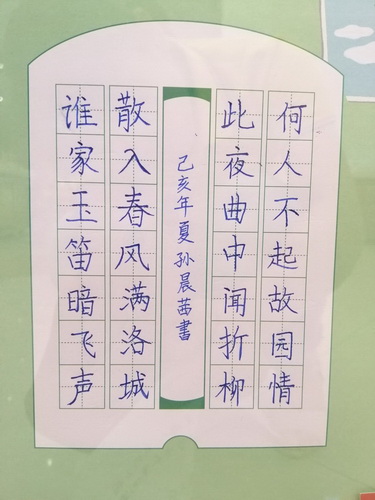 谁家玉笛暗飞声
散入春风满洛城
己亥年夏孙晨茜書
此夜曲中闻折柳
何人不起故园情